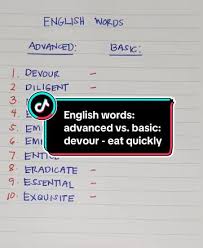 ENGLISH WORDS
ADVANCED: BASIC:
1. DEVOUR -
2. DILIGENT -
3.
4.
English words:
advanced vs. basic:
devour - eat quickly
5. EM
6. EMI
7. ENTI
8. ERADICATE -
9. ESSENTIAL -
10. EXQUISITE -